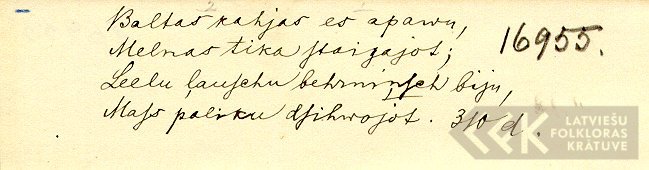 Baltas kahjas es apawu,
Melnas tika staigajot; 16955.
Leelu ļauschu behrninsch biju,
Mass paliku dsihwojot. 310 d.
LATVIEŠU
FOLKLORAS
KRĀTUVE